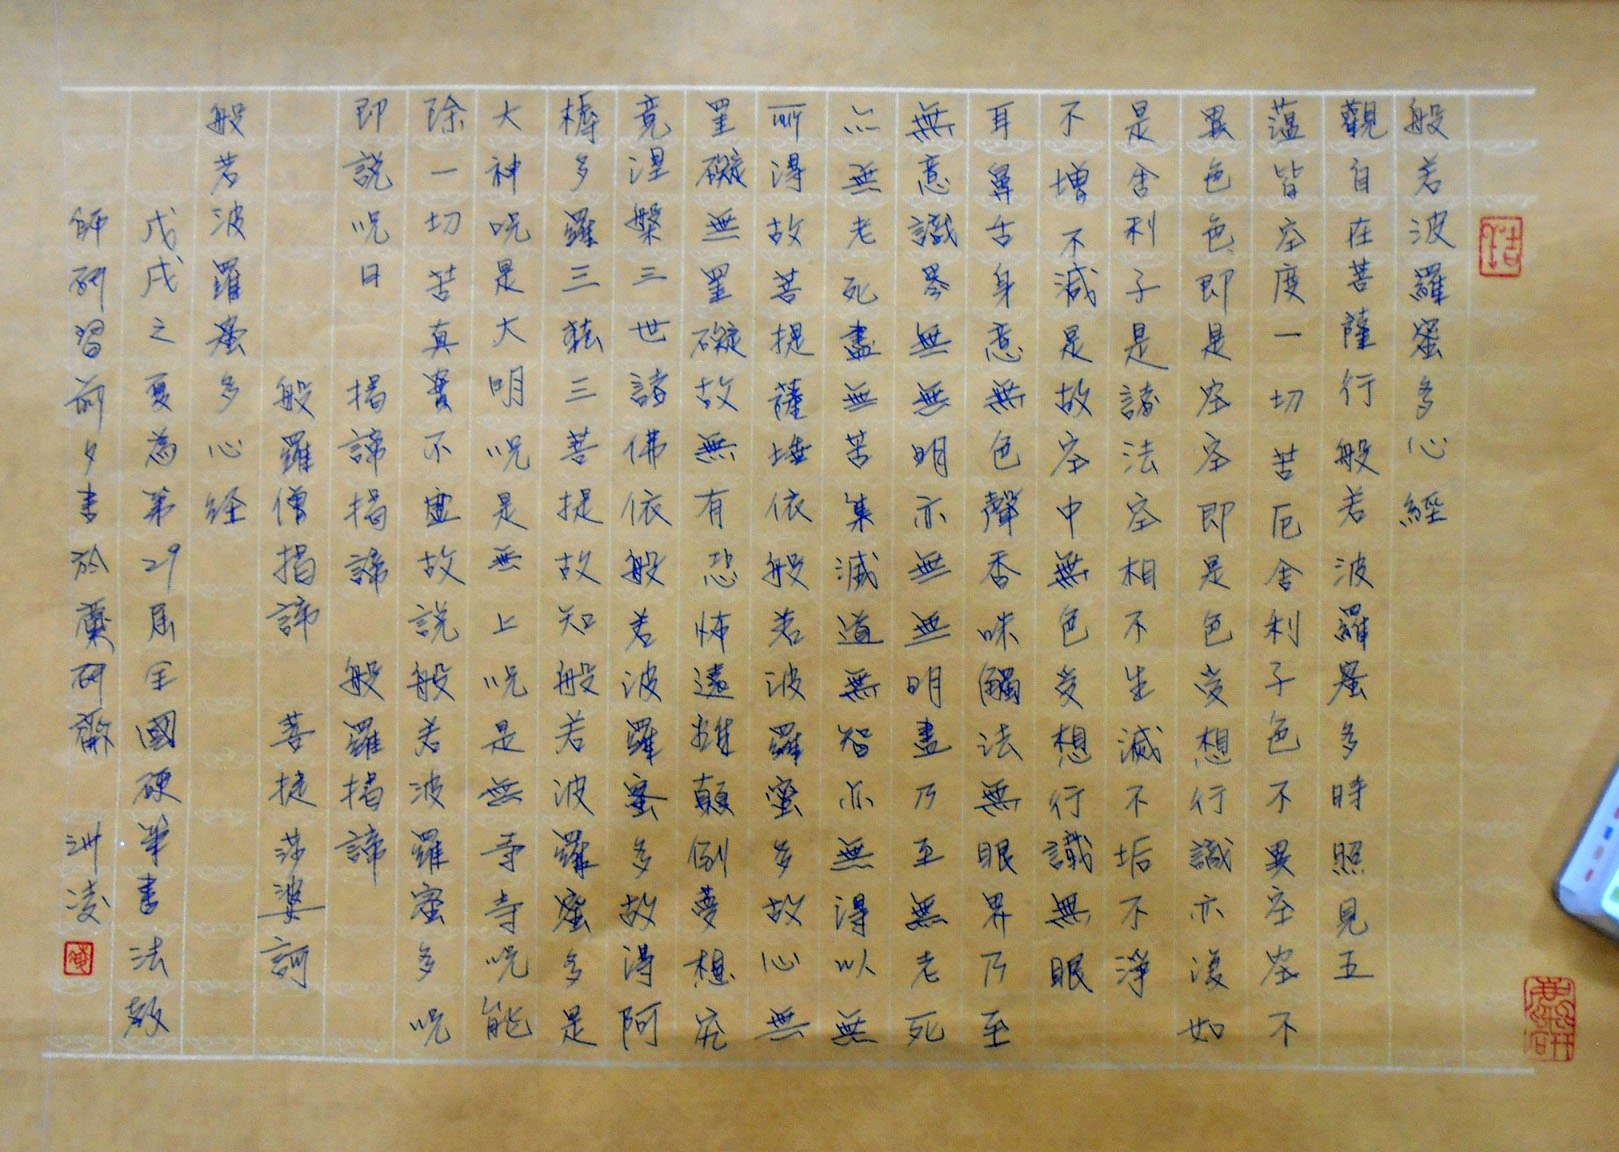 般若波羅蜜多心經
觀自在菩薩行般若波羅蜜多時照見五
蕴皆空度一切苦厄舍利子色不異空空不
異色色即是空空即是色受想行識亦復如
是舍利子是諸法空相不生滅不垢不淨
不增不減是故空中無色受想行識無眼
耳鼻舌身意無色聲香味觸法無眼界乃至
無意識界無無明亦無無明盡乃至無老死
亦無老死盡無苦集滅道無智亦無得以無
所得故菩提薩埵依般若波羅蜜多故心無
罣礙無罣礙故無有恐怖遠離顛倒夢想究
竟涅槃三世諸佛依般若波羅蜜多故得阿
耨多羅三藐三菩提故知般若波羅蜜多是
大神咒是大明咒是無上咒是無等等咒能
除一切苦真實不虛故說般若波羅蜜多咒
即說咒曰 揭諦揭諦 般羅揭諦
般羅僧揭諦 菩提莎婆訶
般若波羅蜜多心经
戊戌之夏為第29屆全國硬筆書法教
師研習前夕書於 研齋 洲凌